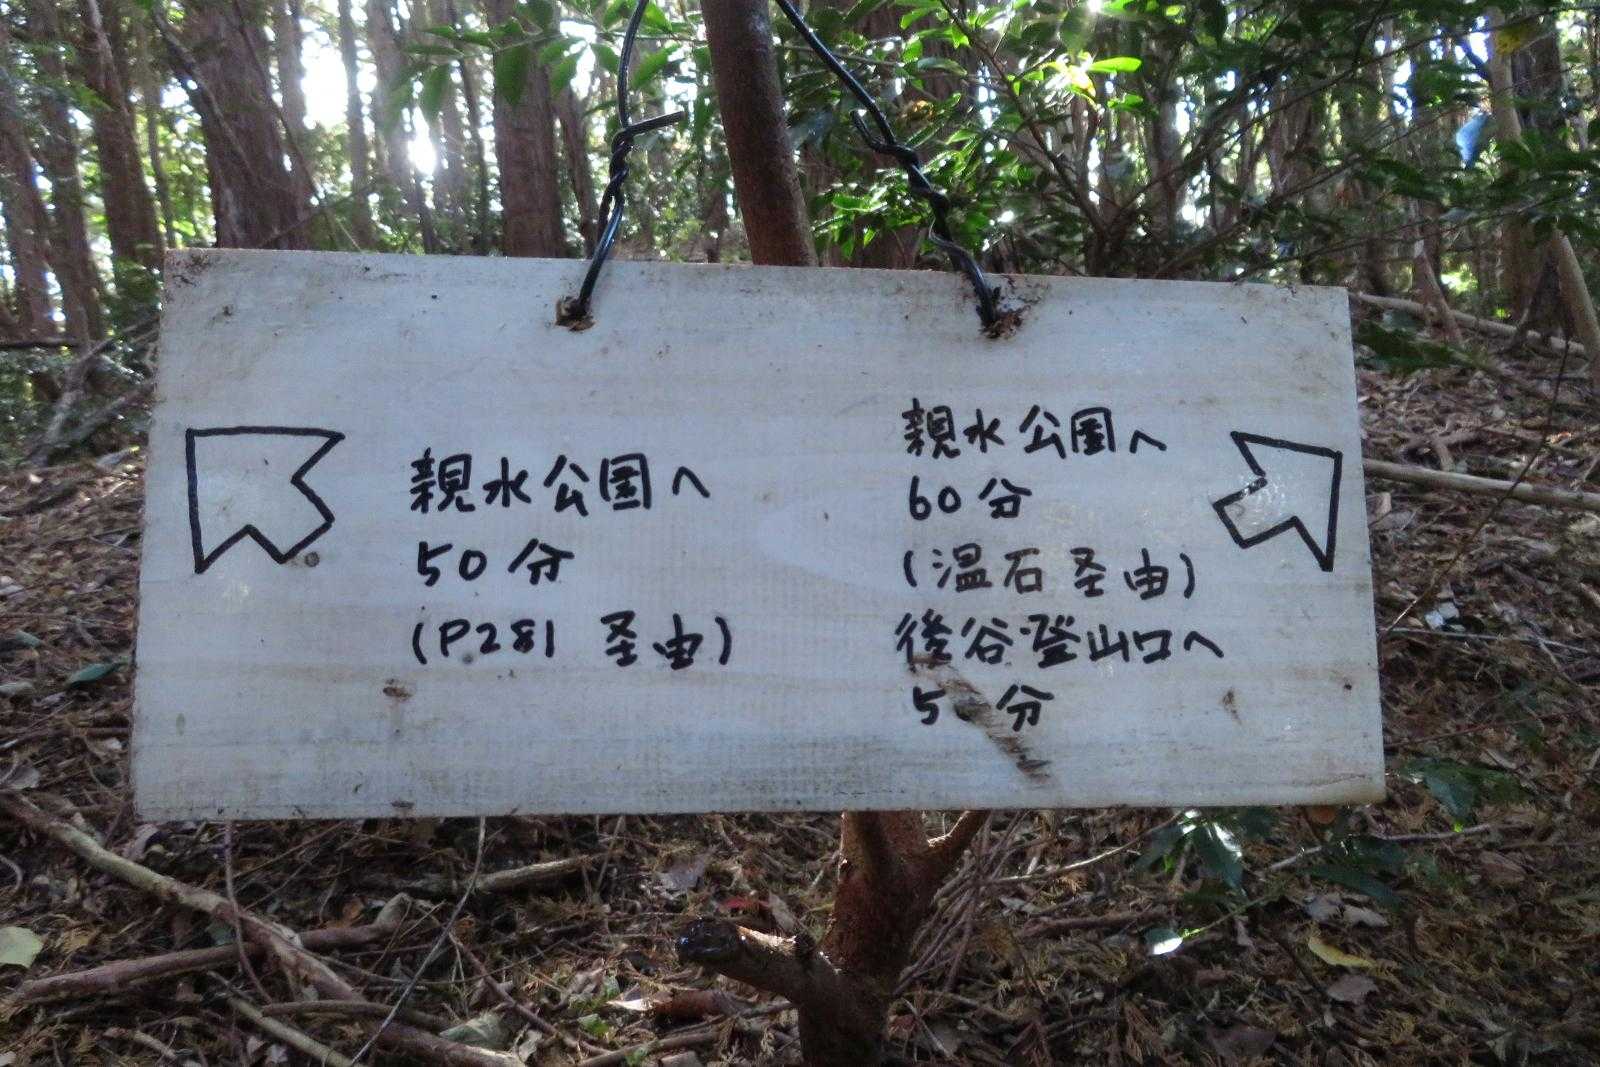 親水公園へ
50分
(P281 経由)
親水公園へ
60分
(温石経由)
後谷登山口へ
50分